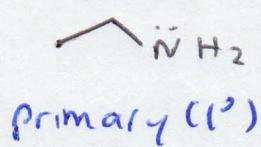 N̈H₂
primary (1°)